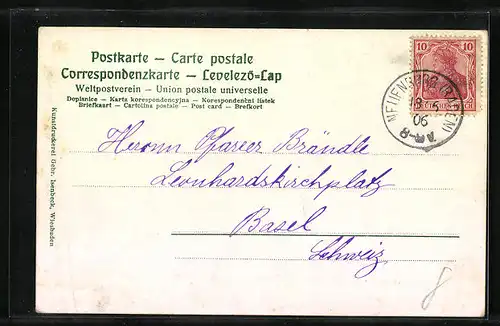 Postkarte — Carte postale
Correspondenzkarte — Levelező-Lap
Weltpostverein — Union postale universelle
Dopisnice — Karta korespondencyjna — Korespondenční lístek
Briefkaart — Cartolina postale — Post card — Brefkort
10 10
DEUTSCHES REICH
NEUENBURG (BADEN)
06
Herrn Pfarrer Brändle
Leonhardskirchplatz
Basel
Schweiz
Kunstdruckerei Gebr. Isenbeck, Wiesbaden